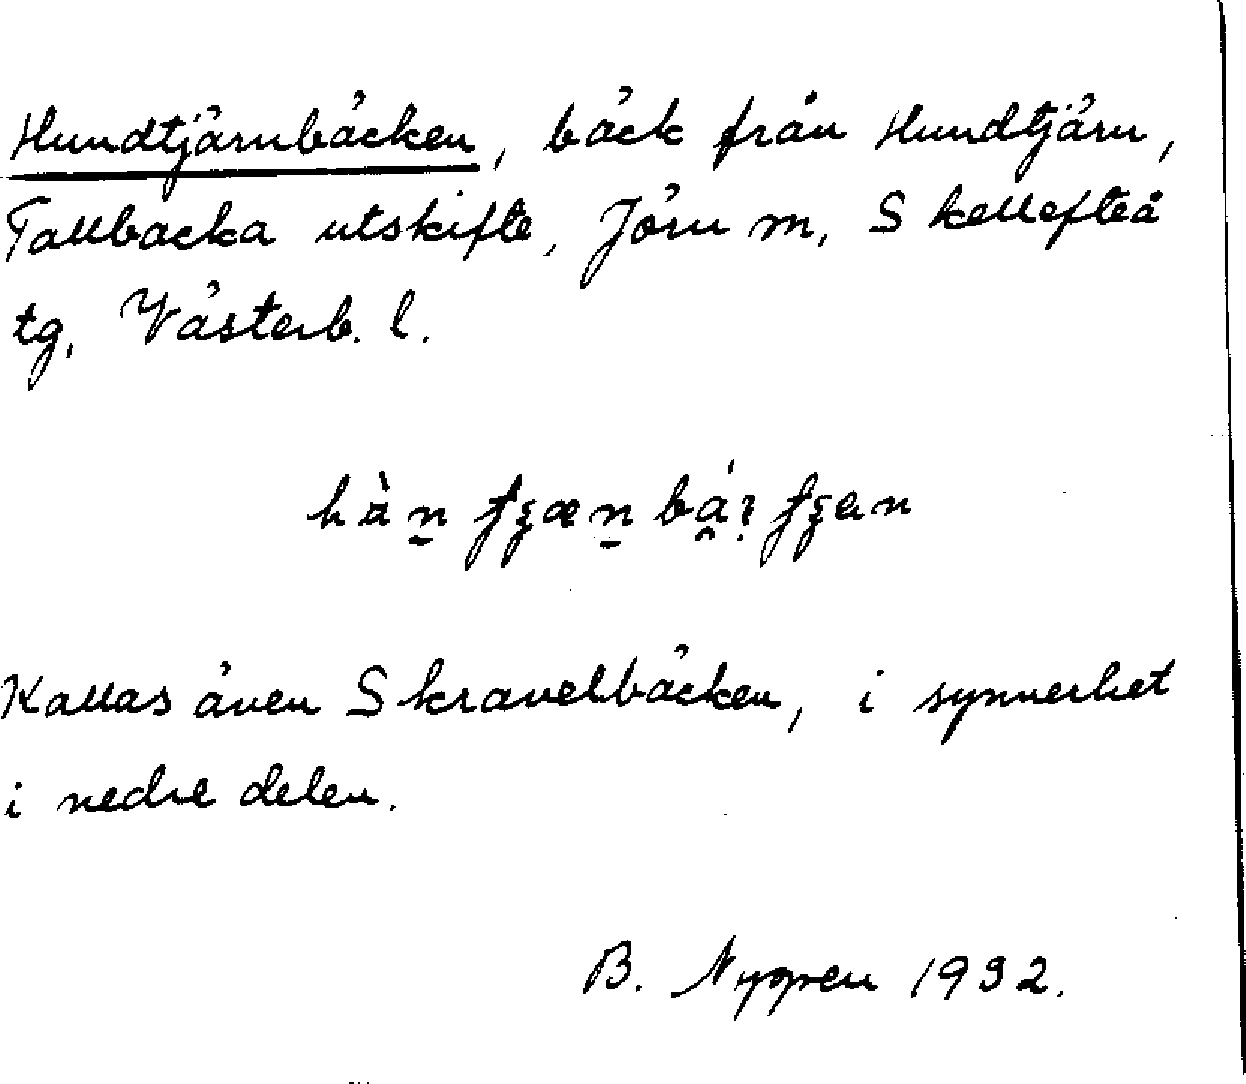 Hundtjärnbäcken, bäck från Hundtjärn,
Tallbacka utskifte, Jörn m, Skellefteå
tg, Västerb. l.
Kallas även Skravelbäcken, i synnerhet
i nedre delen.
B. Nygren 1932.